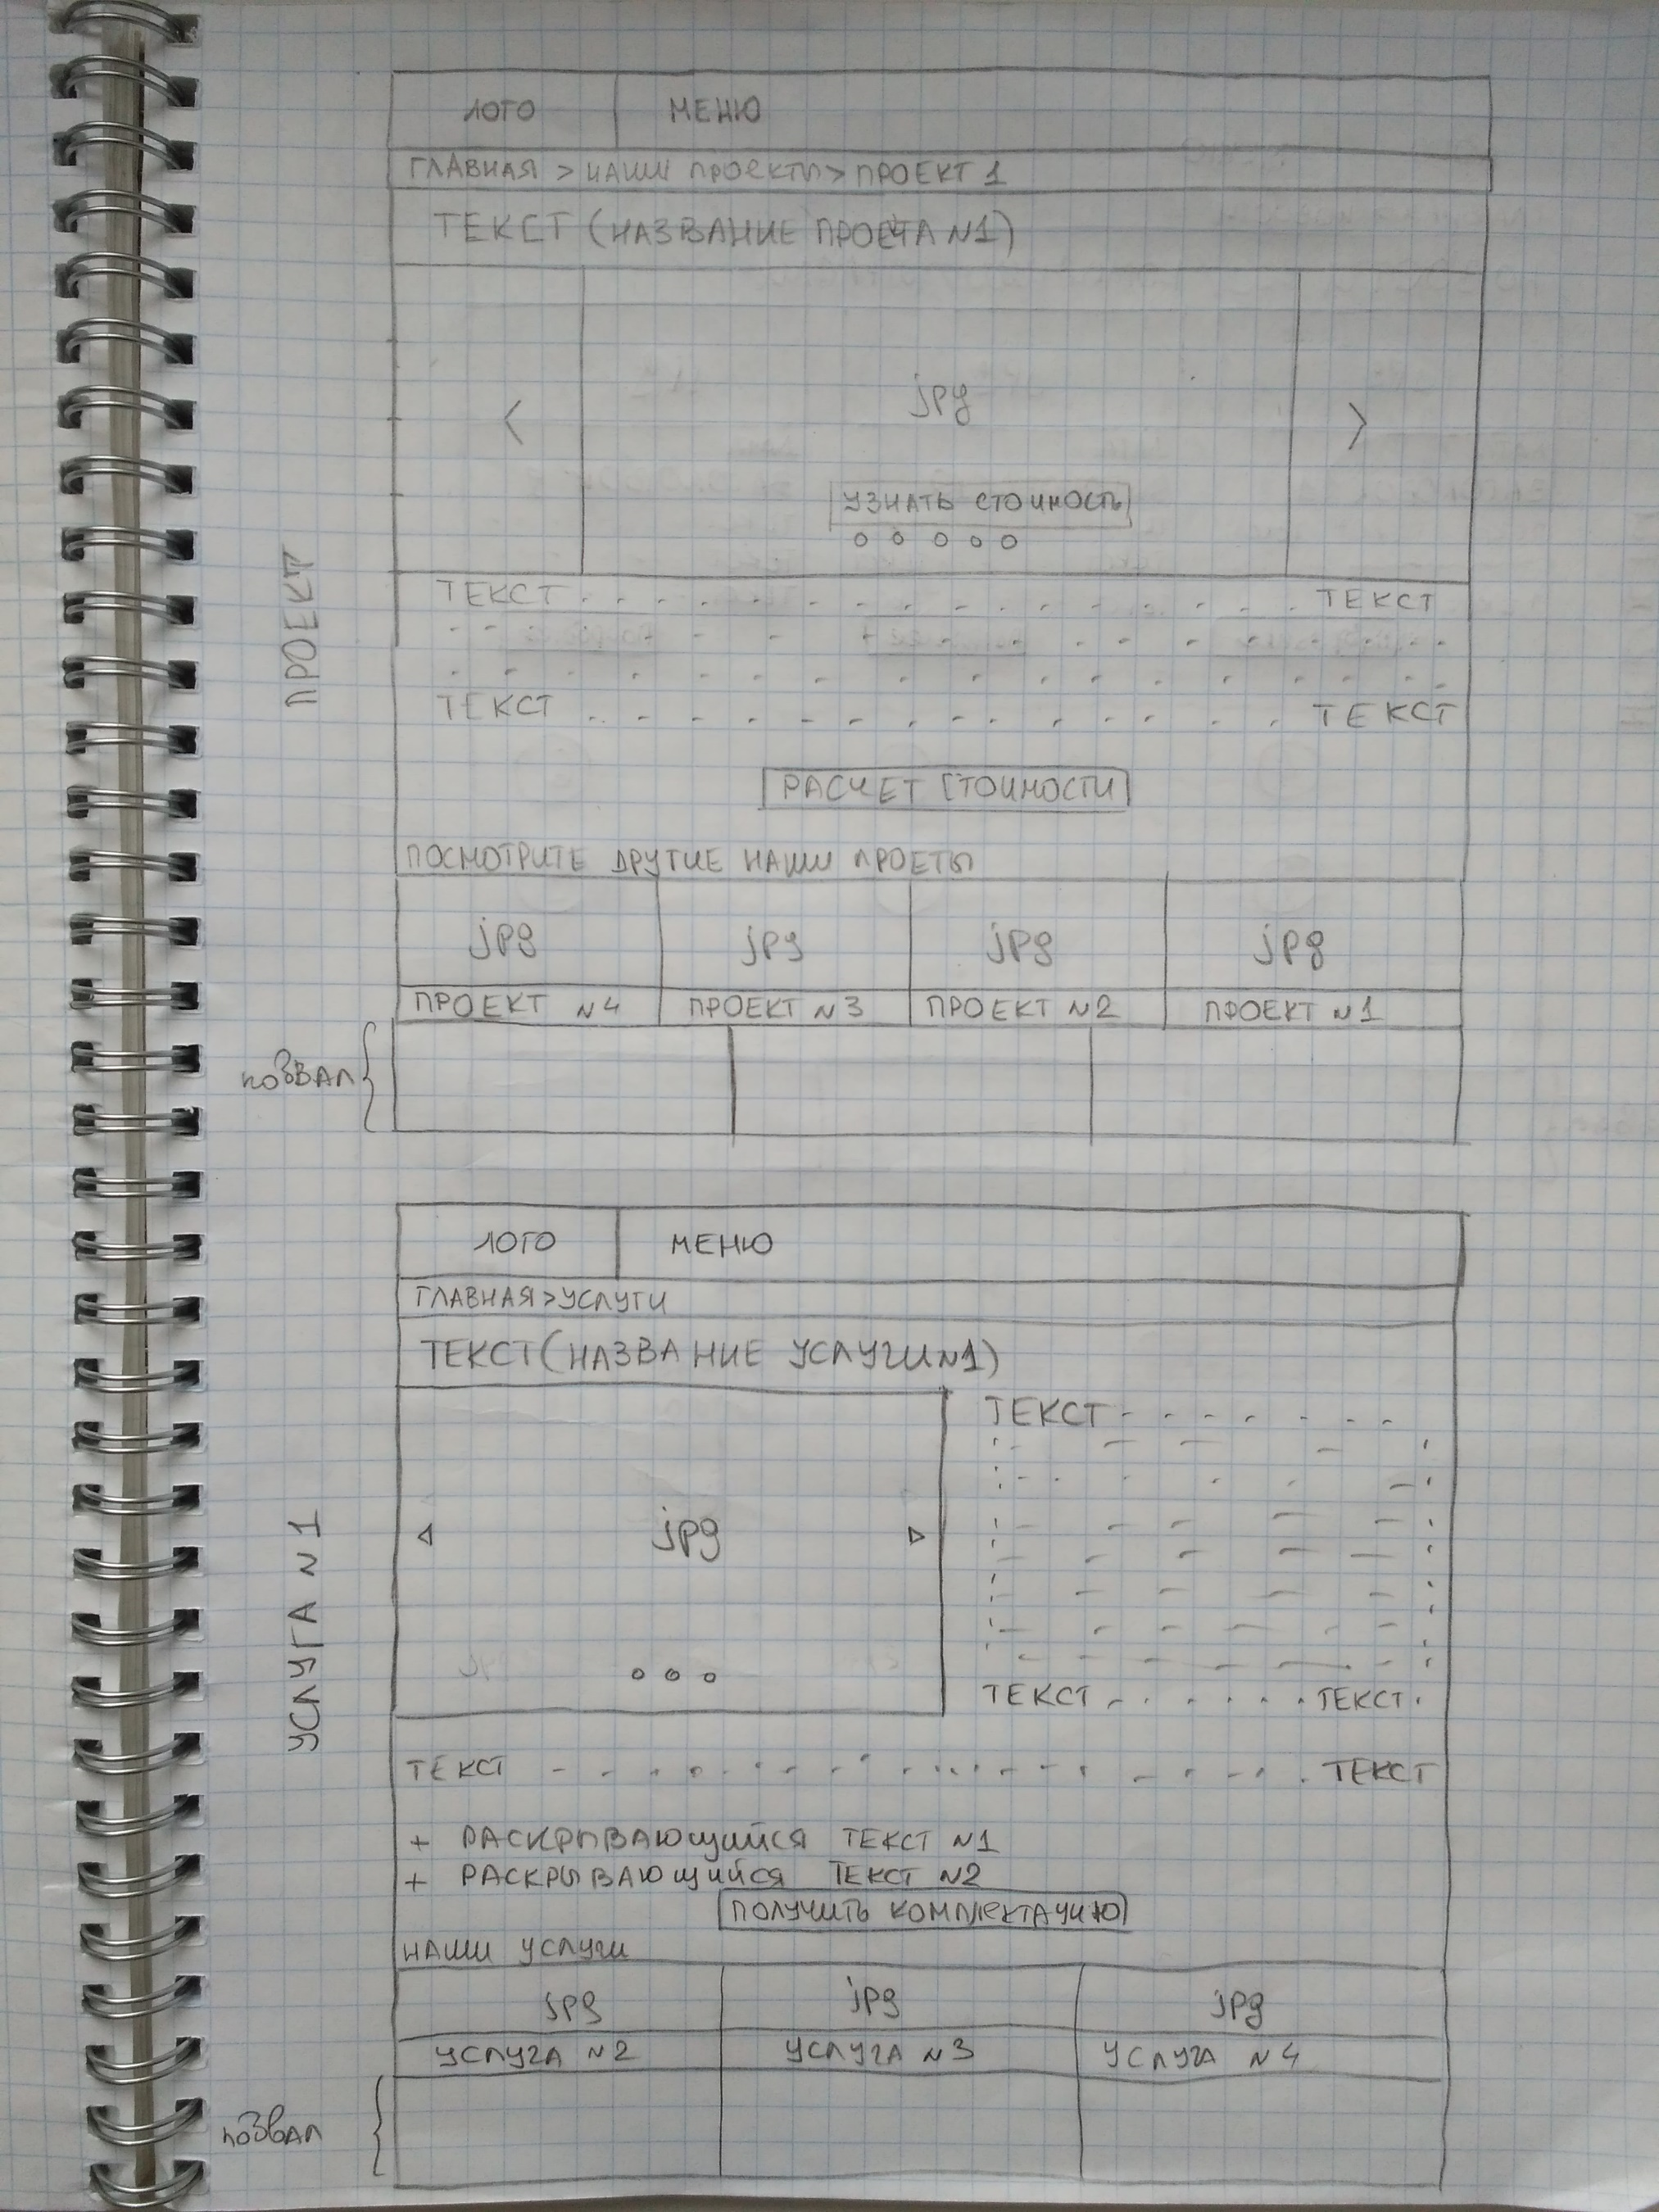 ПРОЕКТ
ЛОГО МЕНЮ
ГЛАВНАЯ > НАШИ ПРОЕКТЫ > ПРОЕКТ 1
ТЕКСТ (НАЗВАНИЕ ПРОЕКТА N1)
< jpg >
УЗНАТЬ СТОИМОСТЬ
ТЕКСТ ТЕКСТ
ТЕКСТ ТЕКСТ
РАСЧЕТ СТОИМОСТИ
ПОСМОТРИТЕ ДРУГИЕ НАШИ ПРОЕТЫ
jpg jpg jpg jpg
ПРОЕКТ N4 ПРОЕКТ N3 ПРОЕКТ N2 ПРОЕКТ N1
УСЛУГА N1
ЛОГО МЕНЮ
ГЛАВНАЯ > УСЛУГИ
ТЕКСТ (НАЗВАНИЕ УСЛУГИ N1)
ТЕКСТ
jpg
ТЕКСТ ТЕКСТ
ТЕКСТ ТЕКСТ
+ РАСКРЫВАЮЩИЙСЯ ТЕКСТ N1
+ РАСКРЫВАЮЩИЙСЯ ТЕКСТ N2
ПОЛУЧИТЬ КОМПЛЕКТАЦИЮ
НАШИ УСЛУГИ
jpg jpg jpg
УСЛУГА N2 УСЛУГА N3 УСЛУГА N4